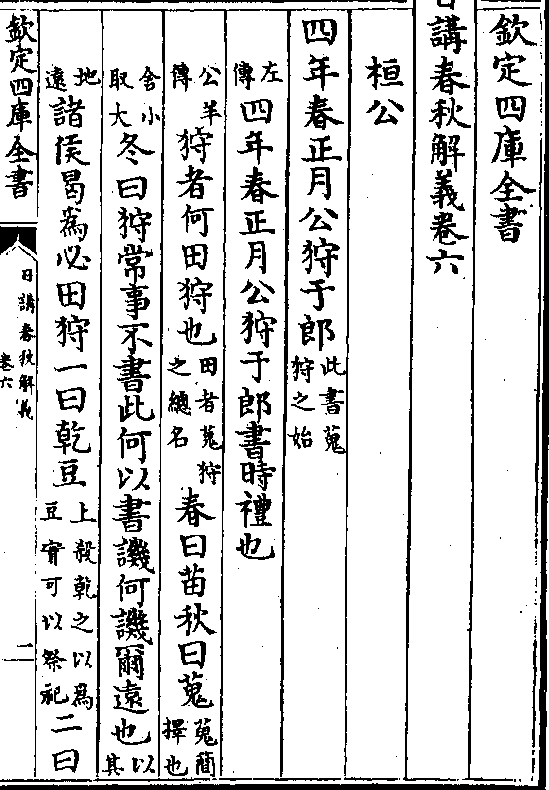 欽定四庫全書
日講春秋解義卷六
桓公
四年春正月公狩于郎此書蒐狩之始
左傳四年春正月公狩于郎書時禮也
公羊傳狩者何田狩也田者蒐狩之總名春曰苗秋曰蒐蒐簡擇也
舍小取大冬曰狩常事不書此何以書譏何譏爾遠也以其
地遠諸侯曷為必田狩一曰乾豆上殺乾之以為豆實可以祭祀二曰
欽定四庫全書
日講春秋解義
卷六
二